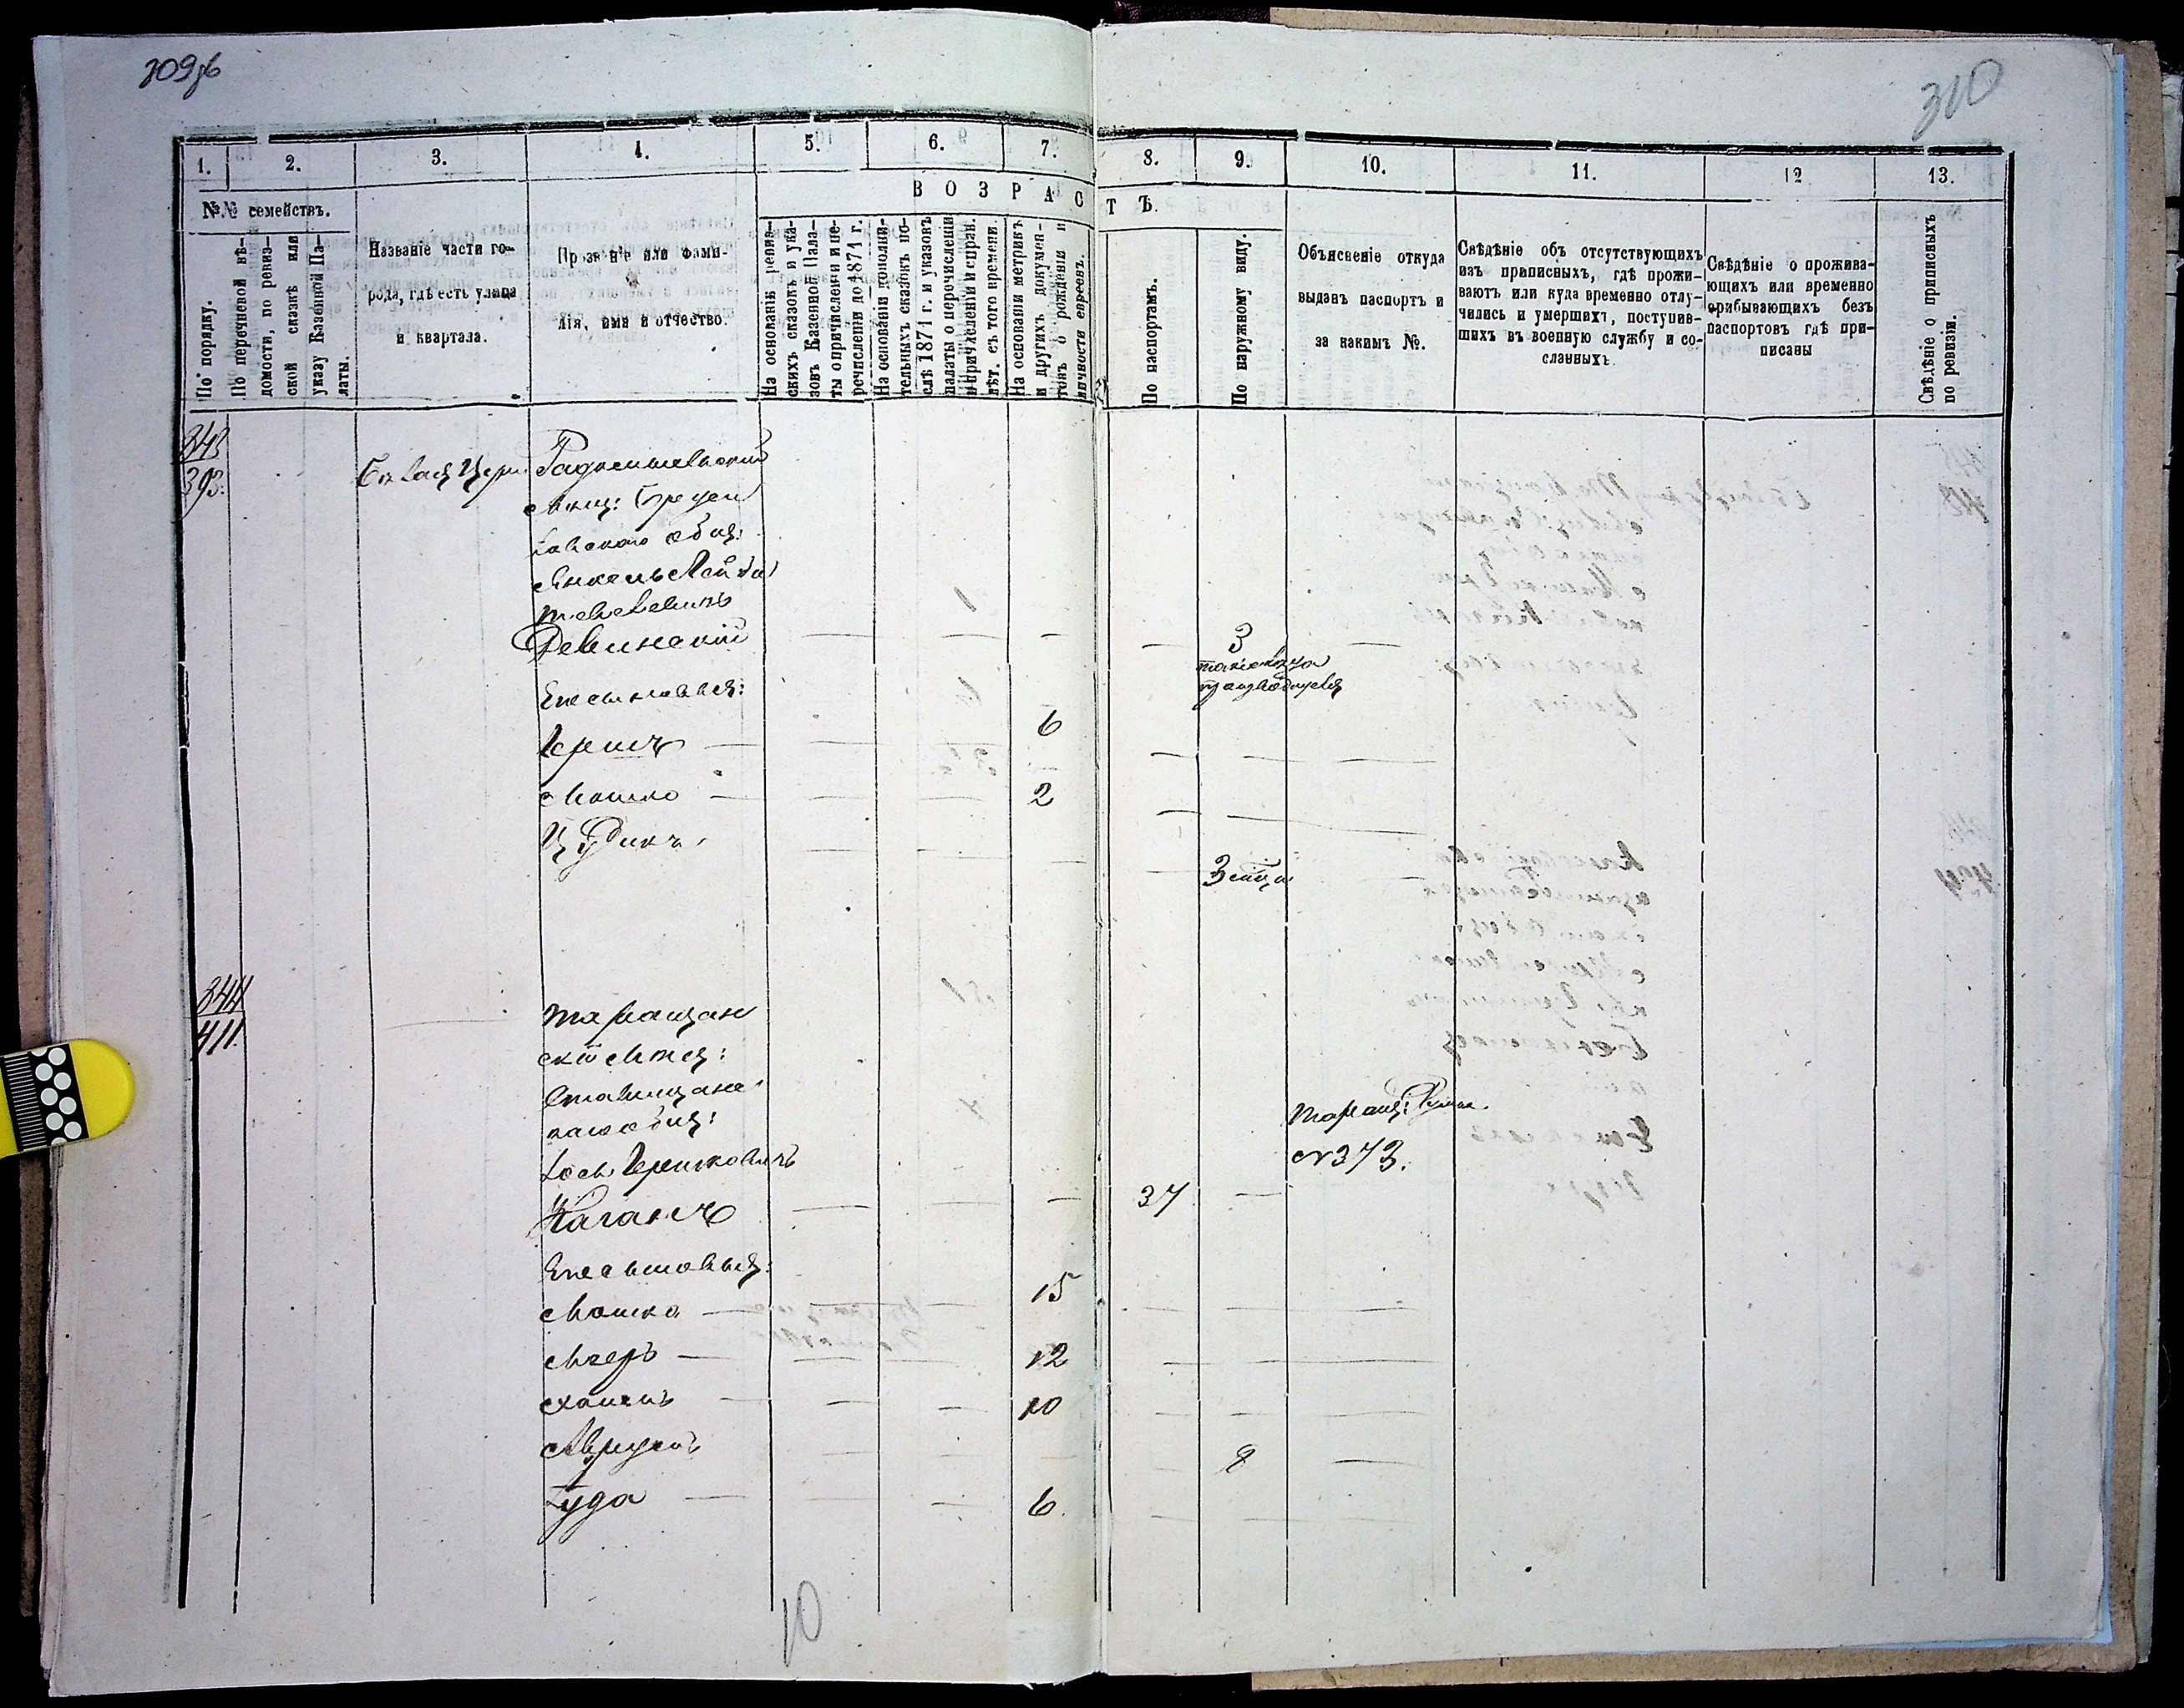 309об
310
1. 2. 3. 4. 5. 6. 7. 8. 9. 10. 11. 12 13.
№№ семействъ.
ВОЗРАСТЪ.
По порядку.
По перечневой вѣ-
домости, по ревиз-
ской сказкѣ или
указу Казенной Па-
латы.
Названіе части го-
рода, гдѣ есть улица
и квартала.
Прозваніе или фами-
лія, имя и отчество.
На основаніи ревиз-
скихъ сказокъ и ука-
зовъ Казенной Пала-
ты о причисленіи и пе-
речисленіи до 1871 г.
На основаніи дополни-
тельныхъ сказокъ по-
слѣ 1871 г. и указовъ
палаты о перечисленіи
и причисленіи и справ.
лѣт. съ того времени.
На основаніи метрикъ
и другихъ докумен-
товъ о рожденіи и
личности евреевъ.
По паспортамъ.
По наружному виду.
Объясненіе откуда
выданъ паспортъ и
за какимъ №.
Свѣдѣніе объ отсутствующихъ
изъ приписныхъ, гдѣ прожи-
ваютъ или куда временно отлу-
чились и умершихъ, поступив-
шихъ въ военную службу и со-
сланныхъ.
Свѣдѣніе о прожива-
ющихъ или временно
прибывающихъ безъ
паспортовъ гдѣ при-
писаны
Свѣдѣніе о приписныхъ
по ревизіи.
343
393.
Бѣлая Церк. Радомысльскій
Мѣщ:
общ:
Янкель Лейба
Ревинскій — — — — 3 —
Его сыновья:
Гершъ — — — 6 — — —
Мошко — — — 2 — — —
Цудикъ — — — — —
344
411.
Таращан
скій Мѣщ:
Ставищанс
каго общ:
Іось Гершковичъ
Таращ:
№ 373.
Каганъ — — — 37 —
Его сыновья:
Мошко — — — 15 — — —
Мееръ — — — 12 — — —
Хаимъ — — — 10 — — —
Аврумъ — — — — 8 —
Іуда — — — 6. — — —
10